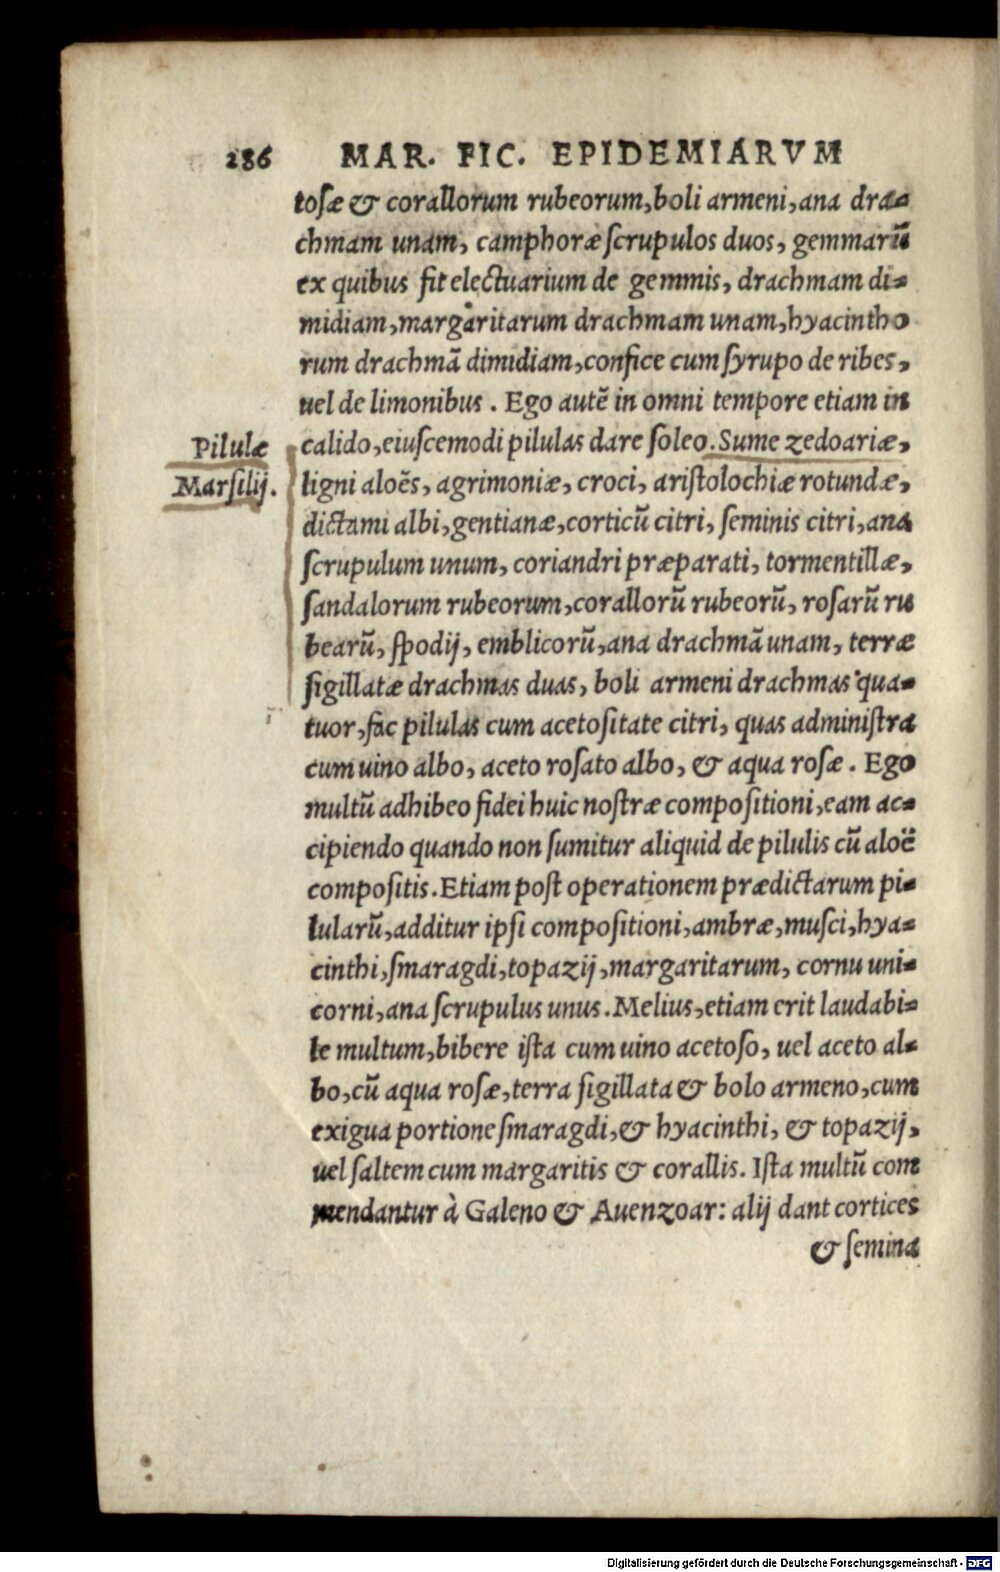 286 MAR. FIC. EPIDEMIARVM
tosæ & corallorum rubeorum, boli armeni, ana dra=
chmam unam, camphoræ scrupulos duos, gemmarũ
ex quibus fit electuarium de gemmis, drachmam di=
midiam, margaritarum drachmam unam, hyacintho
rum drachmã dimidiam, confice cum syrupo de ribes,
uel de limonibus. Ego autẽ in omni tempore etiam in
Pilulæ
Marsilij.
calido, eiuscemodi pilulas dare soleo. Sume zedoariæ,
ligni aloẽs, agrimoniæ, croci, aristolochiæ rotundæ,
dictami albi, gentianæ, corticũ citri, seminis citri, ana
scrupulum unum, coriandri præparati, tormentillæ,
sandalorum rubeorum, corallorũ rubeorũ, rosarũ ru
bearũ, spodij, emblicorũ, ana drachmã unam, terræ
sigillatæ drachmas duas, boli armeni drachmas qua=
tuor, fac pilulas cum acetositate citri, quas administra
cum uino albo, aceto rosato albo, & aqua rosæ. Ego
multũ adhibeo fidei huic nostræ compositioni, eam ac=
cipiendo quando non sumitur aliquid de pilulis cũ aloë
compositis. Etiam post operationem prædictarum pi=
lularũ, additur ipsi compositioni, ambræ, musci, hya=
cinthi, smaragdi, topazij, margaritarum, cornu uni=
corni, ana scrupulus unus. Melius, etiam erit laudabi=
le multum, bibere ista cum uino acetoso, uel aceto al=
bo, cũ aqua rosæ, terra sigillata & bolo armeno, cum
exigua portione smaragdi, & hyacinthi, & topazij,
uel saltem cum margaritis & corallis. Ista multũ com
mendantur à Galeno & Auenzoar: alij dant cortices
& semina
Digitalisierung gefördert durch die Deutsche Forschungsgemeinschaft - DFG